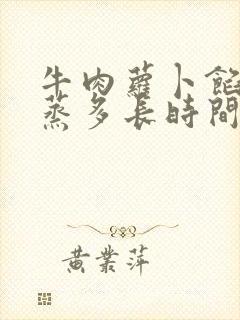 牛肉蘿卜餡
蒸多長時間
黃業萍